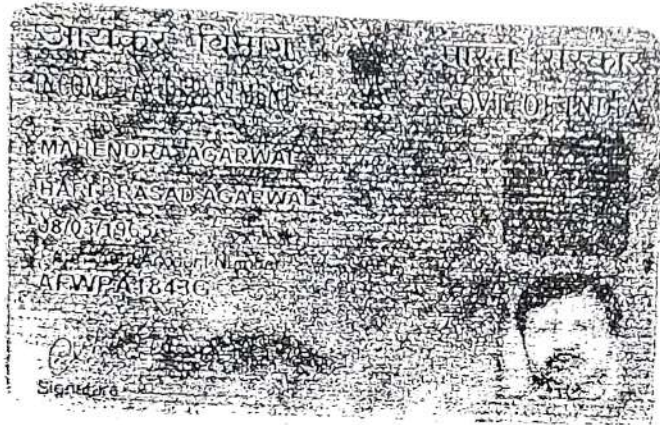 आयकर विभाग
INCOME TAX DEPARTMENT
भारत सरकार
GOVT. OF INDIA
MAHENDRA AGARWAL
HARI PRASAD AGARWAL
08/03/1965
Permanent Account Number
AFWPA1843G
Signature